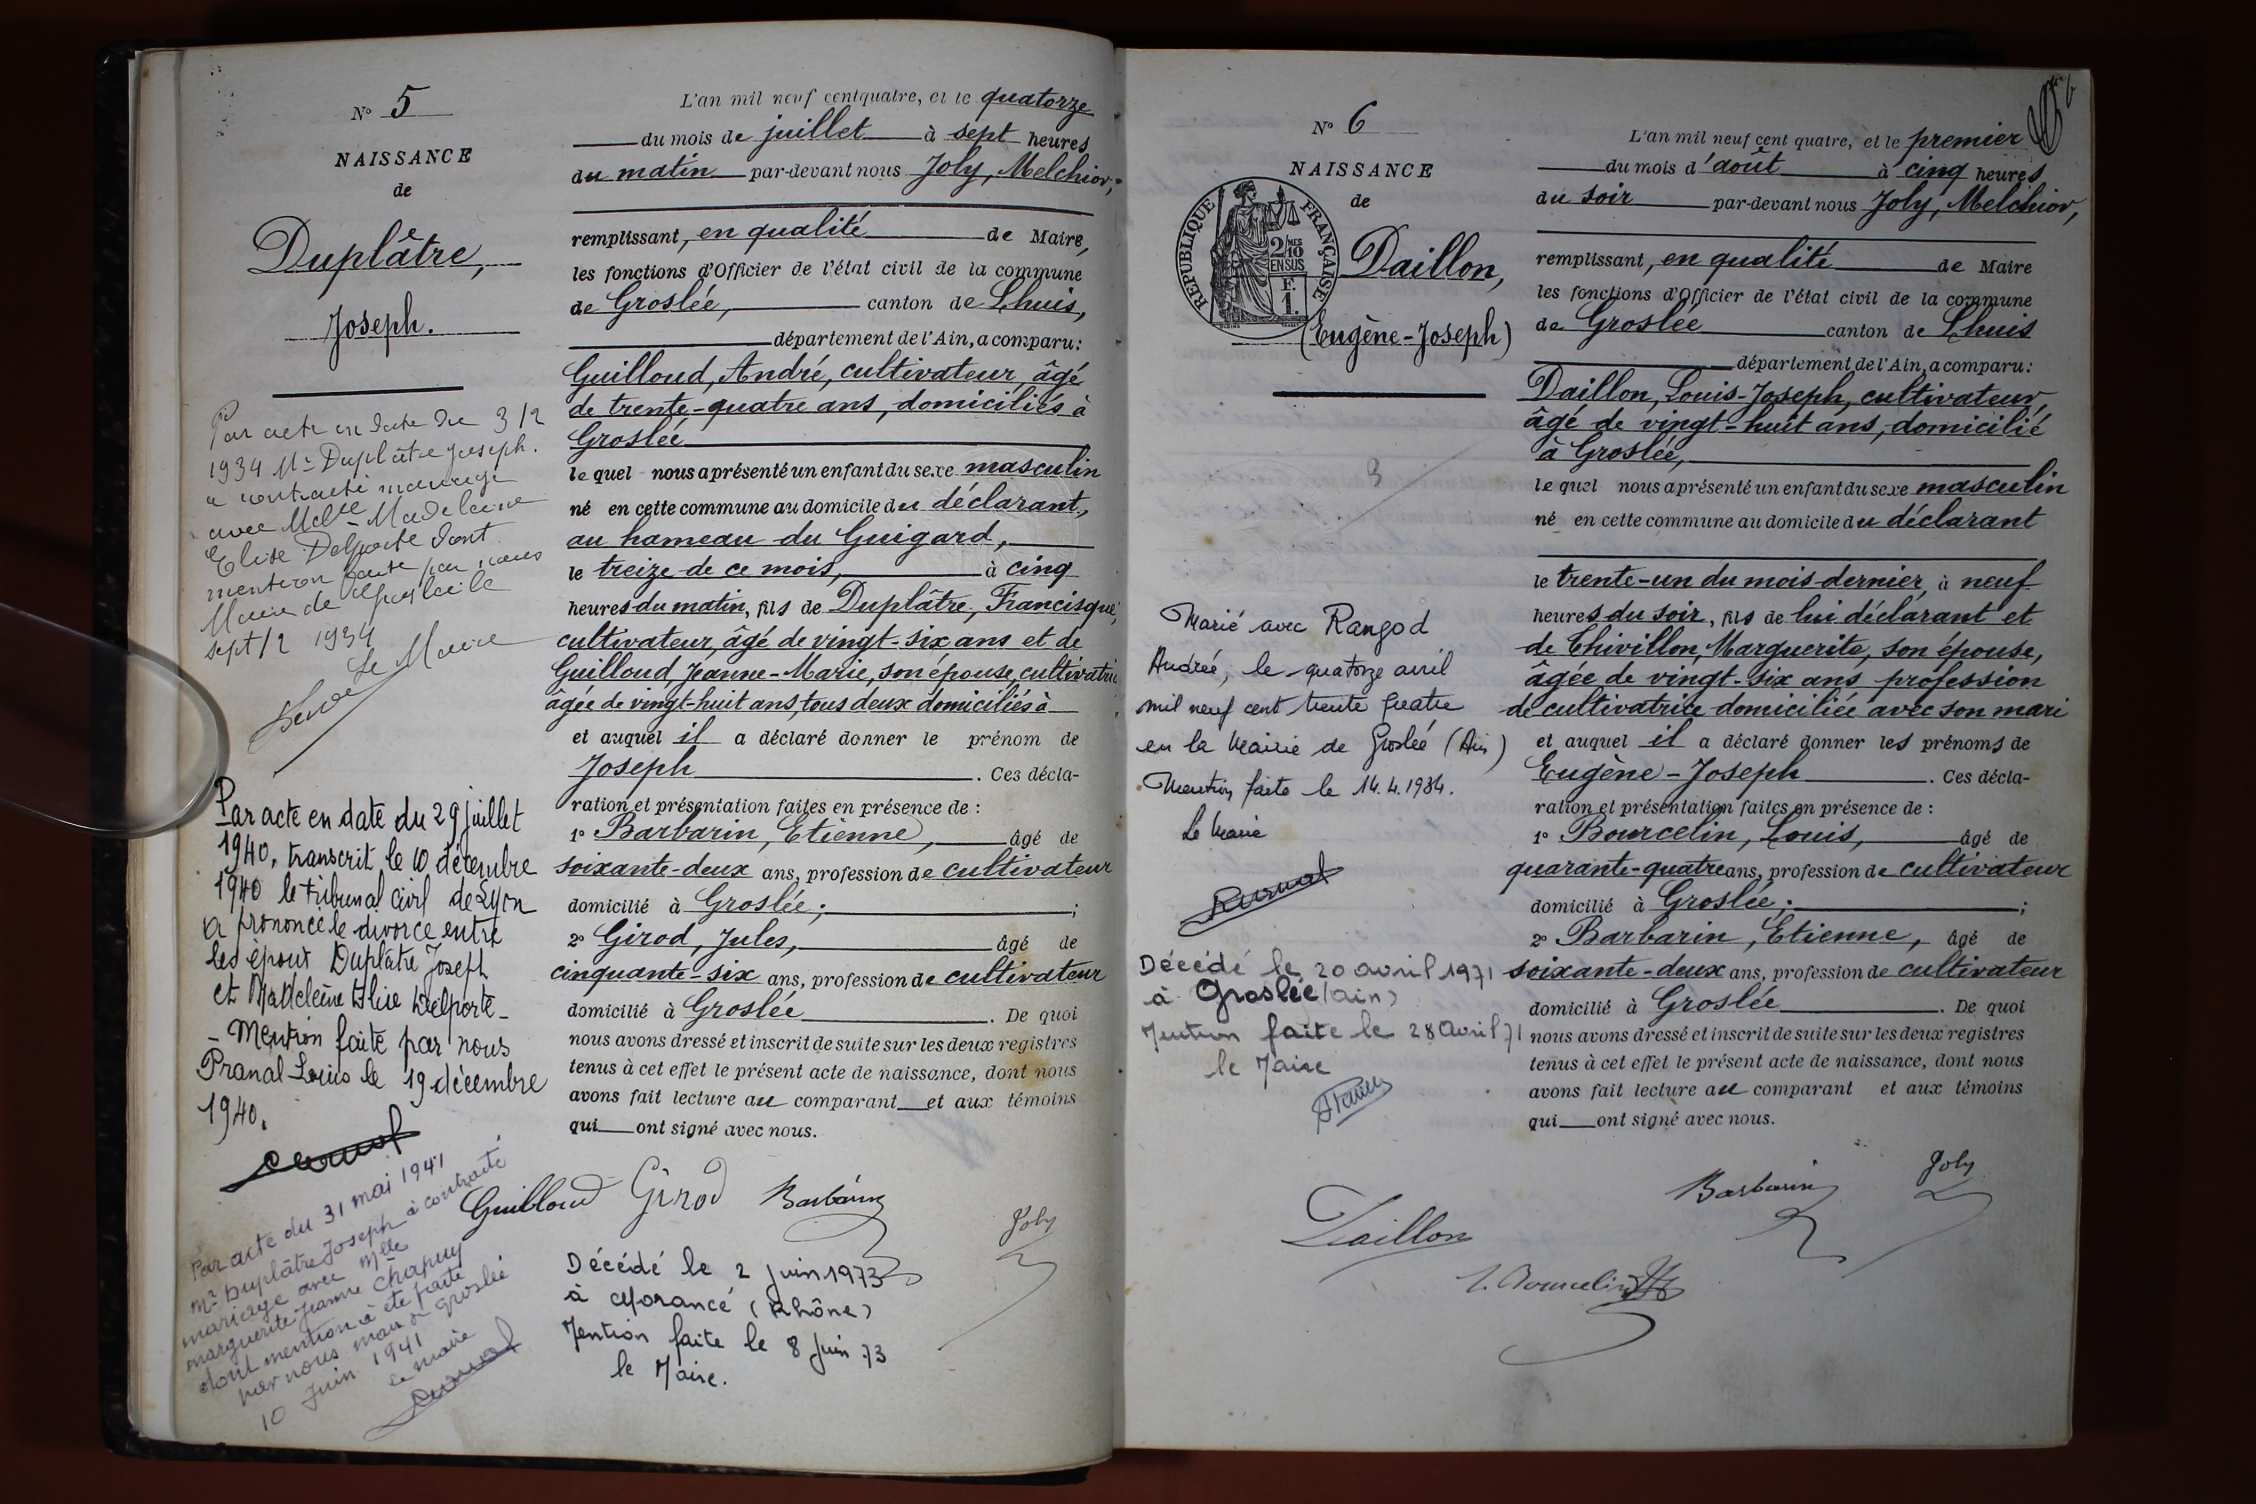 N° 5
NAISSANCE
de
Duplâtre,
Joseph.
Par acte en date du 3/2
1934 Mr Duplâtre Joseph.
a contracté mariage
avec Melle Madeleine
Elise Delporte dont
mention faite par nous
Maire de
sept/2 1934
Le Maire
Par acte en date du 29 juillet
1940, transcrit le 10 décembre
1940 le tribunal civil de Lyon
a prononcé le divorce entre
les époux Duplâtre Joseph
et Madeleine Elise Delporte_
_ Mention faite par nous
Pranal Louis le 19 décembre
1940.
Par acte du 31 mai 1941
Mr Duplâtre Joseph à contracté
mariage avec Mlle
marguerite Jeanne Chapuy
dont mention à été faite
par nous maire Groslée
10 Juin 1941
le maire
L'an mil neuf cent quatre, et le quatorze
du mois de juillet à sept heures
du matin par-devant nous Joly, Melchior,
remplissant, en qualité de Maire,
les fonctions d'Officier de l'état civil de la commune
de Groslée, canton de Lhuis,
département de l'Ain, a comparu:
Guilloud, André, cultivateur, âgé
de trente-quatre ans, domiciliés à
Groslée
le quel nous a présenté un enfant du sexe masculin
né en cette commune au domicile du déclarant,
au hameau du Guigard,
le treize de ce mois, à cinq
heures du matin, fils de Duplâtre, Francisque,
cultivateur, âgé de vingt-six ans et de
Guilloud, Jeanne-Marie, son épouse, cultivatric
âgée de vingt-huit ans, tous deux domiciliés à
et auquel il a déclaré donner le prénom de
Joseph . Ces décla-
ration et présentation faites en présence de :
1° Barbarin, Etienne, âgé de
soixante-deux ans, profession de cultivateur
domicilié à Groslée; ;
2° Girod, Jules, âgé de
cinquante-six ans, profession de cultivateur
domicilié à Groslée . De quoi
nous avons dressé et inscrit de suite sur les deux registres
tenus à cet effet le présent acte de naissance, dont nous
avons fait lecture au comparant et aux témoins
qui ont signé avec nous.
Guilloud Girod Barbarin
Joly
Décédé le 2 juin 1973
à Morancé (Rhône)
Mention faite le 8 Juin 73
le Maire.
N° 6
NAISSANCE
de
RÉPUBLIQUE FRANÇAISE
2/MES
10
EN SUS
F.
1.
Daillon,
(Eugène-Joseph)
3
Marié avec Rangod
Andrée, le quatorze avril
mil neuf cent trente quatre
en la Mairie de Groslée (Ain)
Mention faite le 14.4.1934.
Le Maire
Décédé le 20 avril 1971
à Groslée (ain)
Mention faite le 28 Avril 71
le Maire
L'an mil neuf cent quatre, et le premier
du mois d'août à cinq heures
du soir par-devant nous Joly, Melchior,
remplissant, en qualité de Maire
les fonctions d'Officier de l'état civil de la commune
de Groslée canton de Lhuis
département de l'Ain, a comparu:
Daillon, Louis-Joseph, cultivateur,
âgé de vingt-huit ans, domicilié
à Groslée,
le quel nous a présenté un enfant du sexe masculin
né en cette commune au domicile du déclarant
le trente-un du mois dernier, à neuf
heures du soir, fils de lui déclarant et
de Chivillon, Marguerite, son épouse,
âgée de vingt-six ans profession
de cultivatrice domiciliée avec son mari
et auquel il a déclaré donner les prénoms de
Eugène-Joseph . Ces décla-
ration et présentation faites en présence de :
1° Bourcelin, Louis, âgé de
quarante-quatre ans, profession de cultivateur
domicilié à Groslée; ;
2° Barbarin, Etienne, âgé de
soixante-deux ans, profession de cultivateur
domicilié à Groslée . De quoi
nous avons dressé et inscrit de suite sur les deux registres
tenus à cet effet le présent acte de naissance, dont nous
avons fait lecture au comparant et aux témoins
qui ont signé avec nous.
Barbarin Joly
Daillon
L. Bourcelin